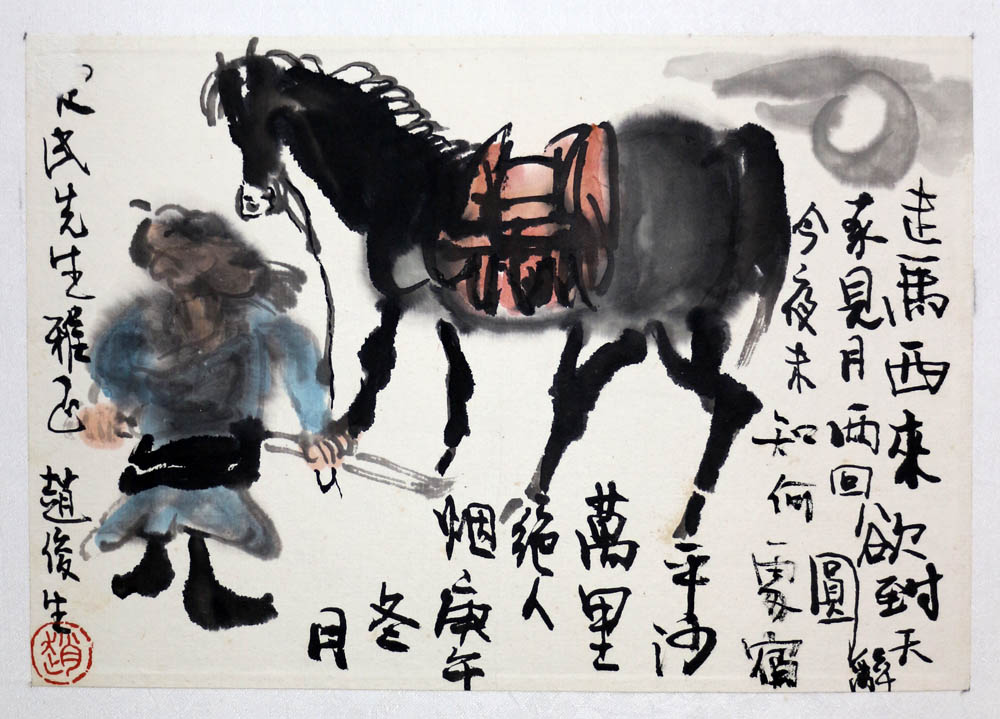 走馬西來欲到天辭
家見月兩回圓
今夜未知何處宿
平沙
萬里
絶人
烟庚午
冬
月
民先生雅正 趙俊生
趙